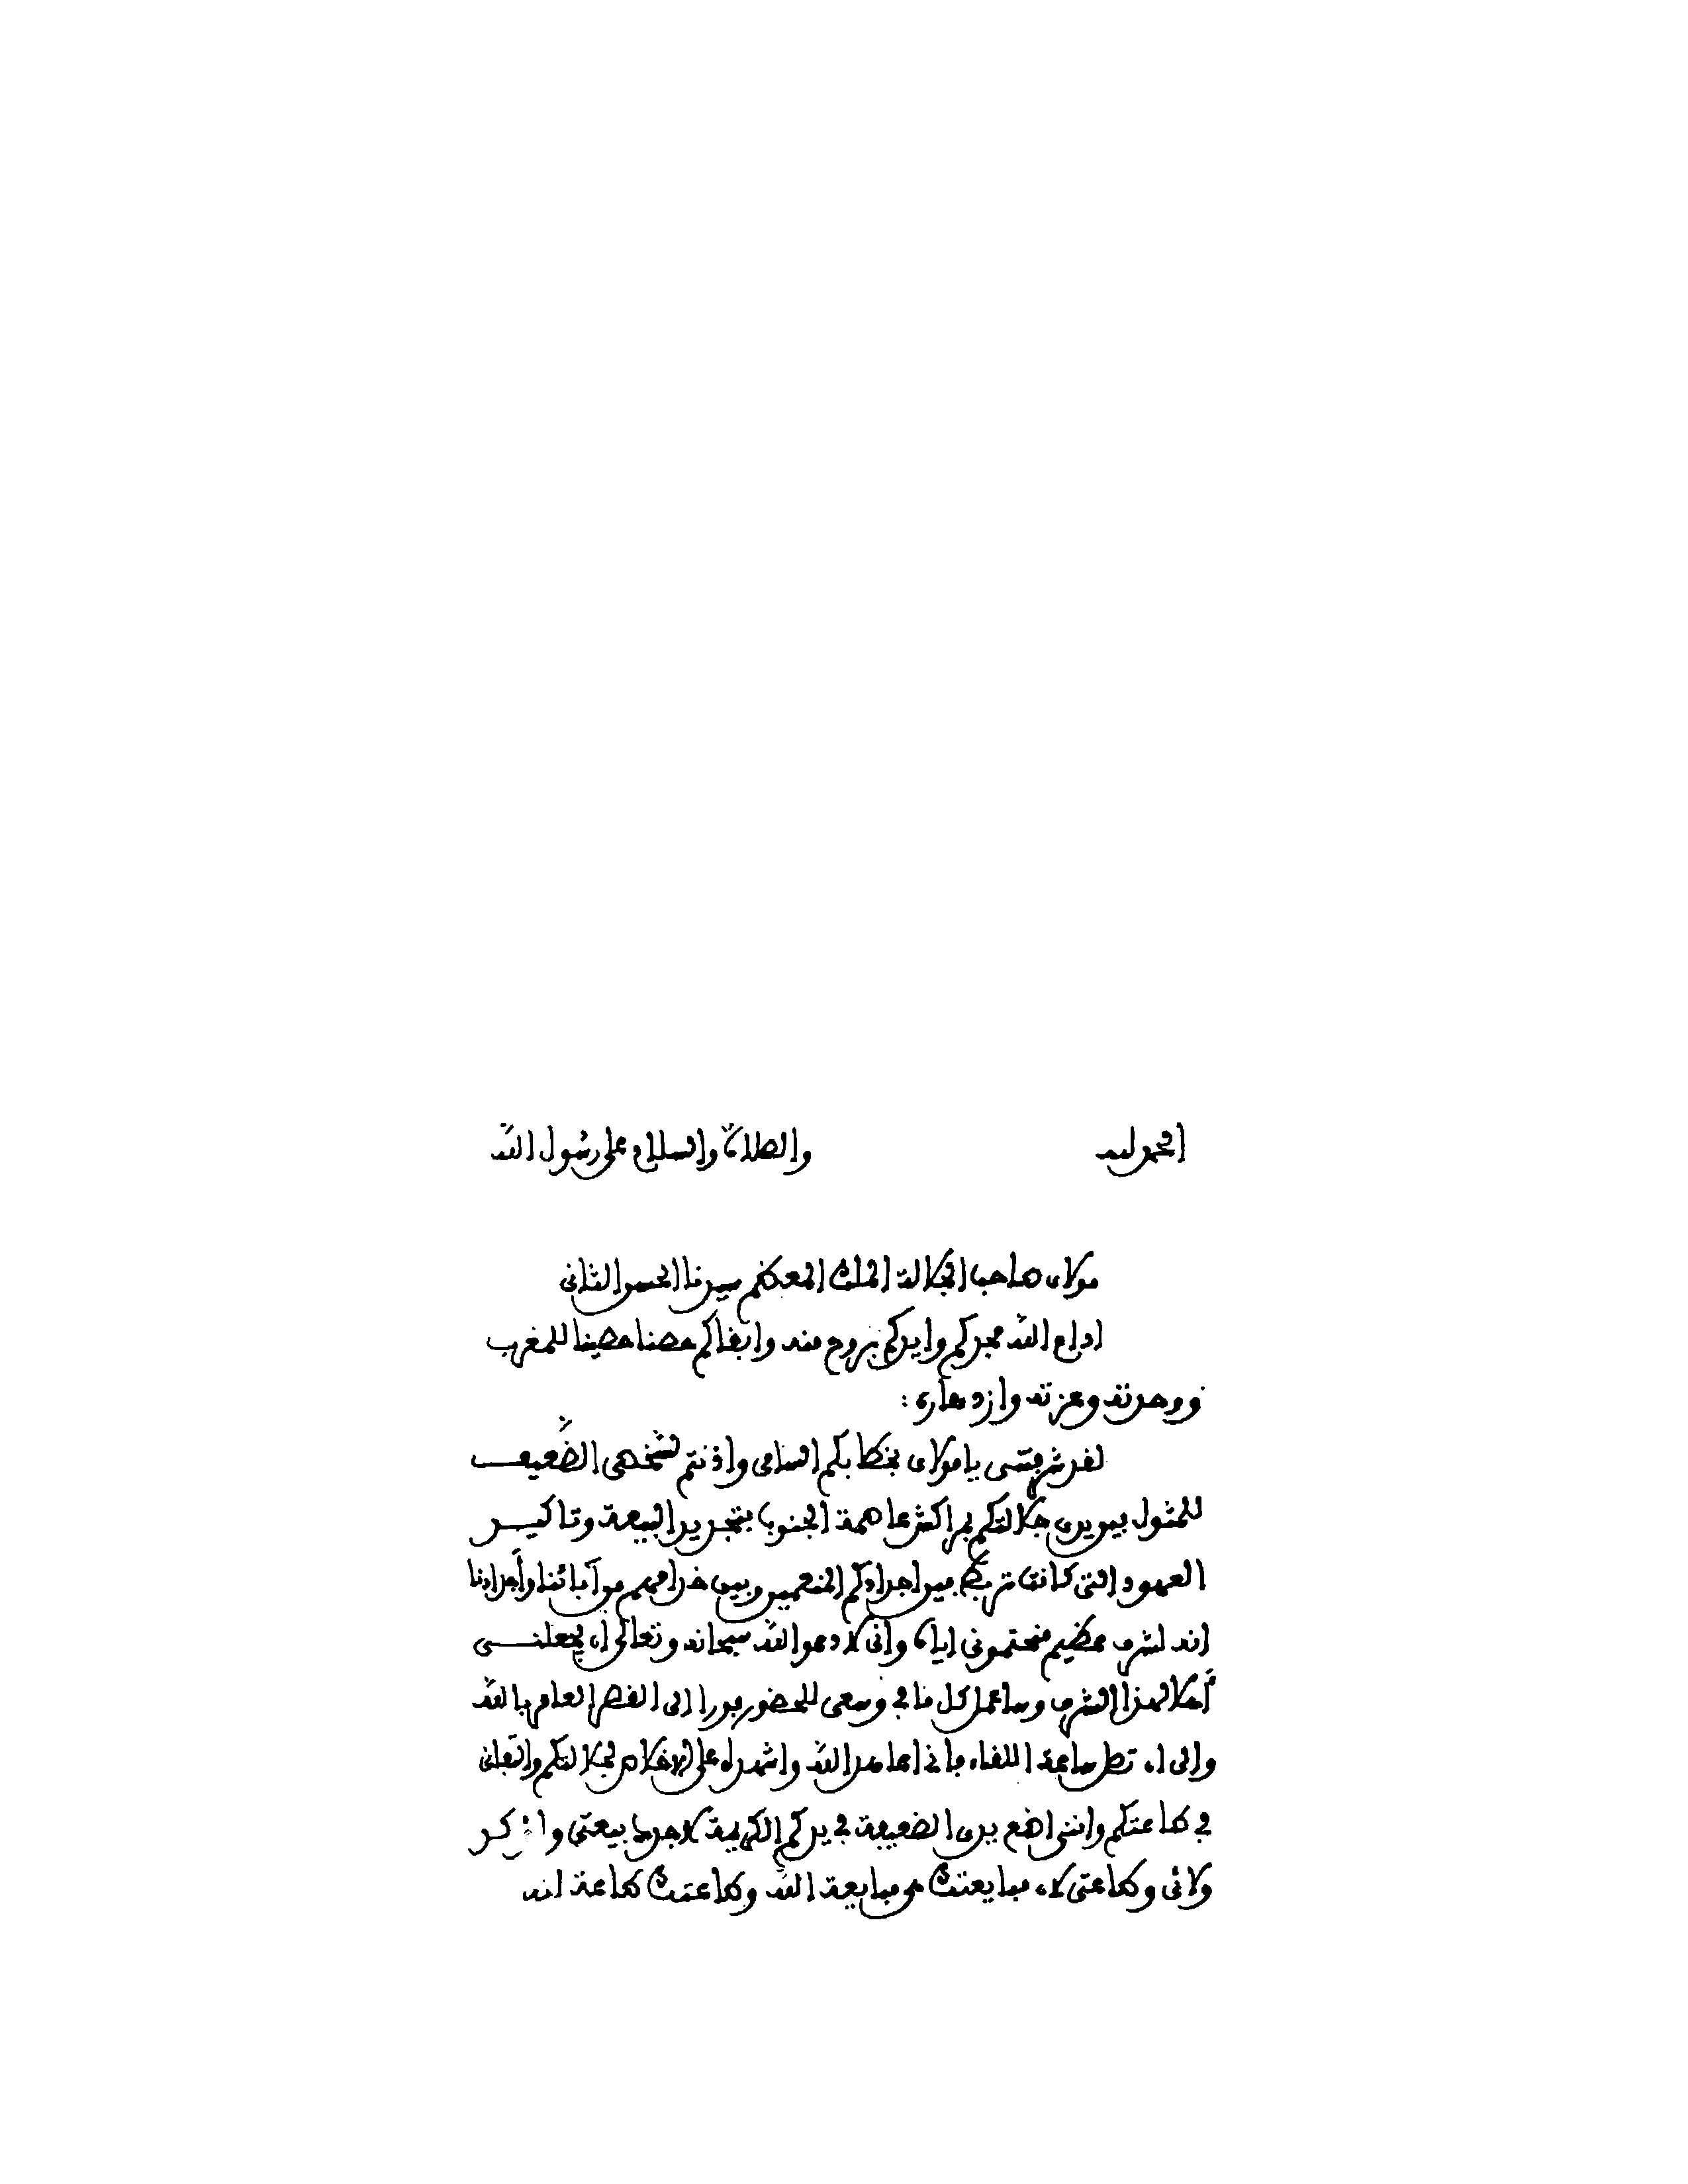 الحمد لله والصلاة والسلام على رسول الله
مولاي صاحب الجلالة الملك المعظم سيدنا الحسن الثاني
ادام الله مجدكم وايدكم بروح منه وابقاكم حصنا حصينا للمغرب
ووحدته وعزته وازدهاره :
لقد شرفتني يا مولاي بخطابكم السامي واذنتم لشخصي الضعيف
للمثول بين يدي جلالتكم بمراكش عاصمة الجنوب بتجديد البيعة وتاكيد
العهود التي كانت تربط بين اجدادكم المنعمين وبين خدامهم من آبائنا وأجدادنا
انه لشرف عظيم منحتموني اياه واني لادعو الله سبحانه وتعالى ان يجعلني
أهلا لهذا الشرف وساعمل كل ما في وسعي للحضور فورا الى القصر العامر بالله
والى ان تصل ساعة اللقاء فاني اعاهد الله واشهده على الاخلاص لجلالتكم والتفاني
في طاعتكم وانني اضع يدي الضعيفة في يدكم الكريمة لاجدد بيعتي واؤكد
ولائي وطاعتي لان مبايعتك من مبايعة الله وطاعتك طاعة لله